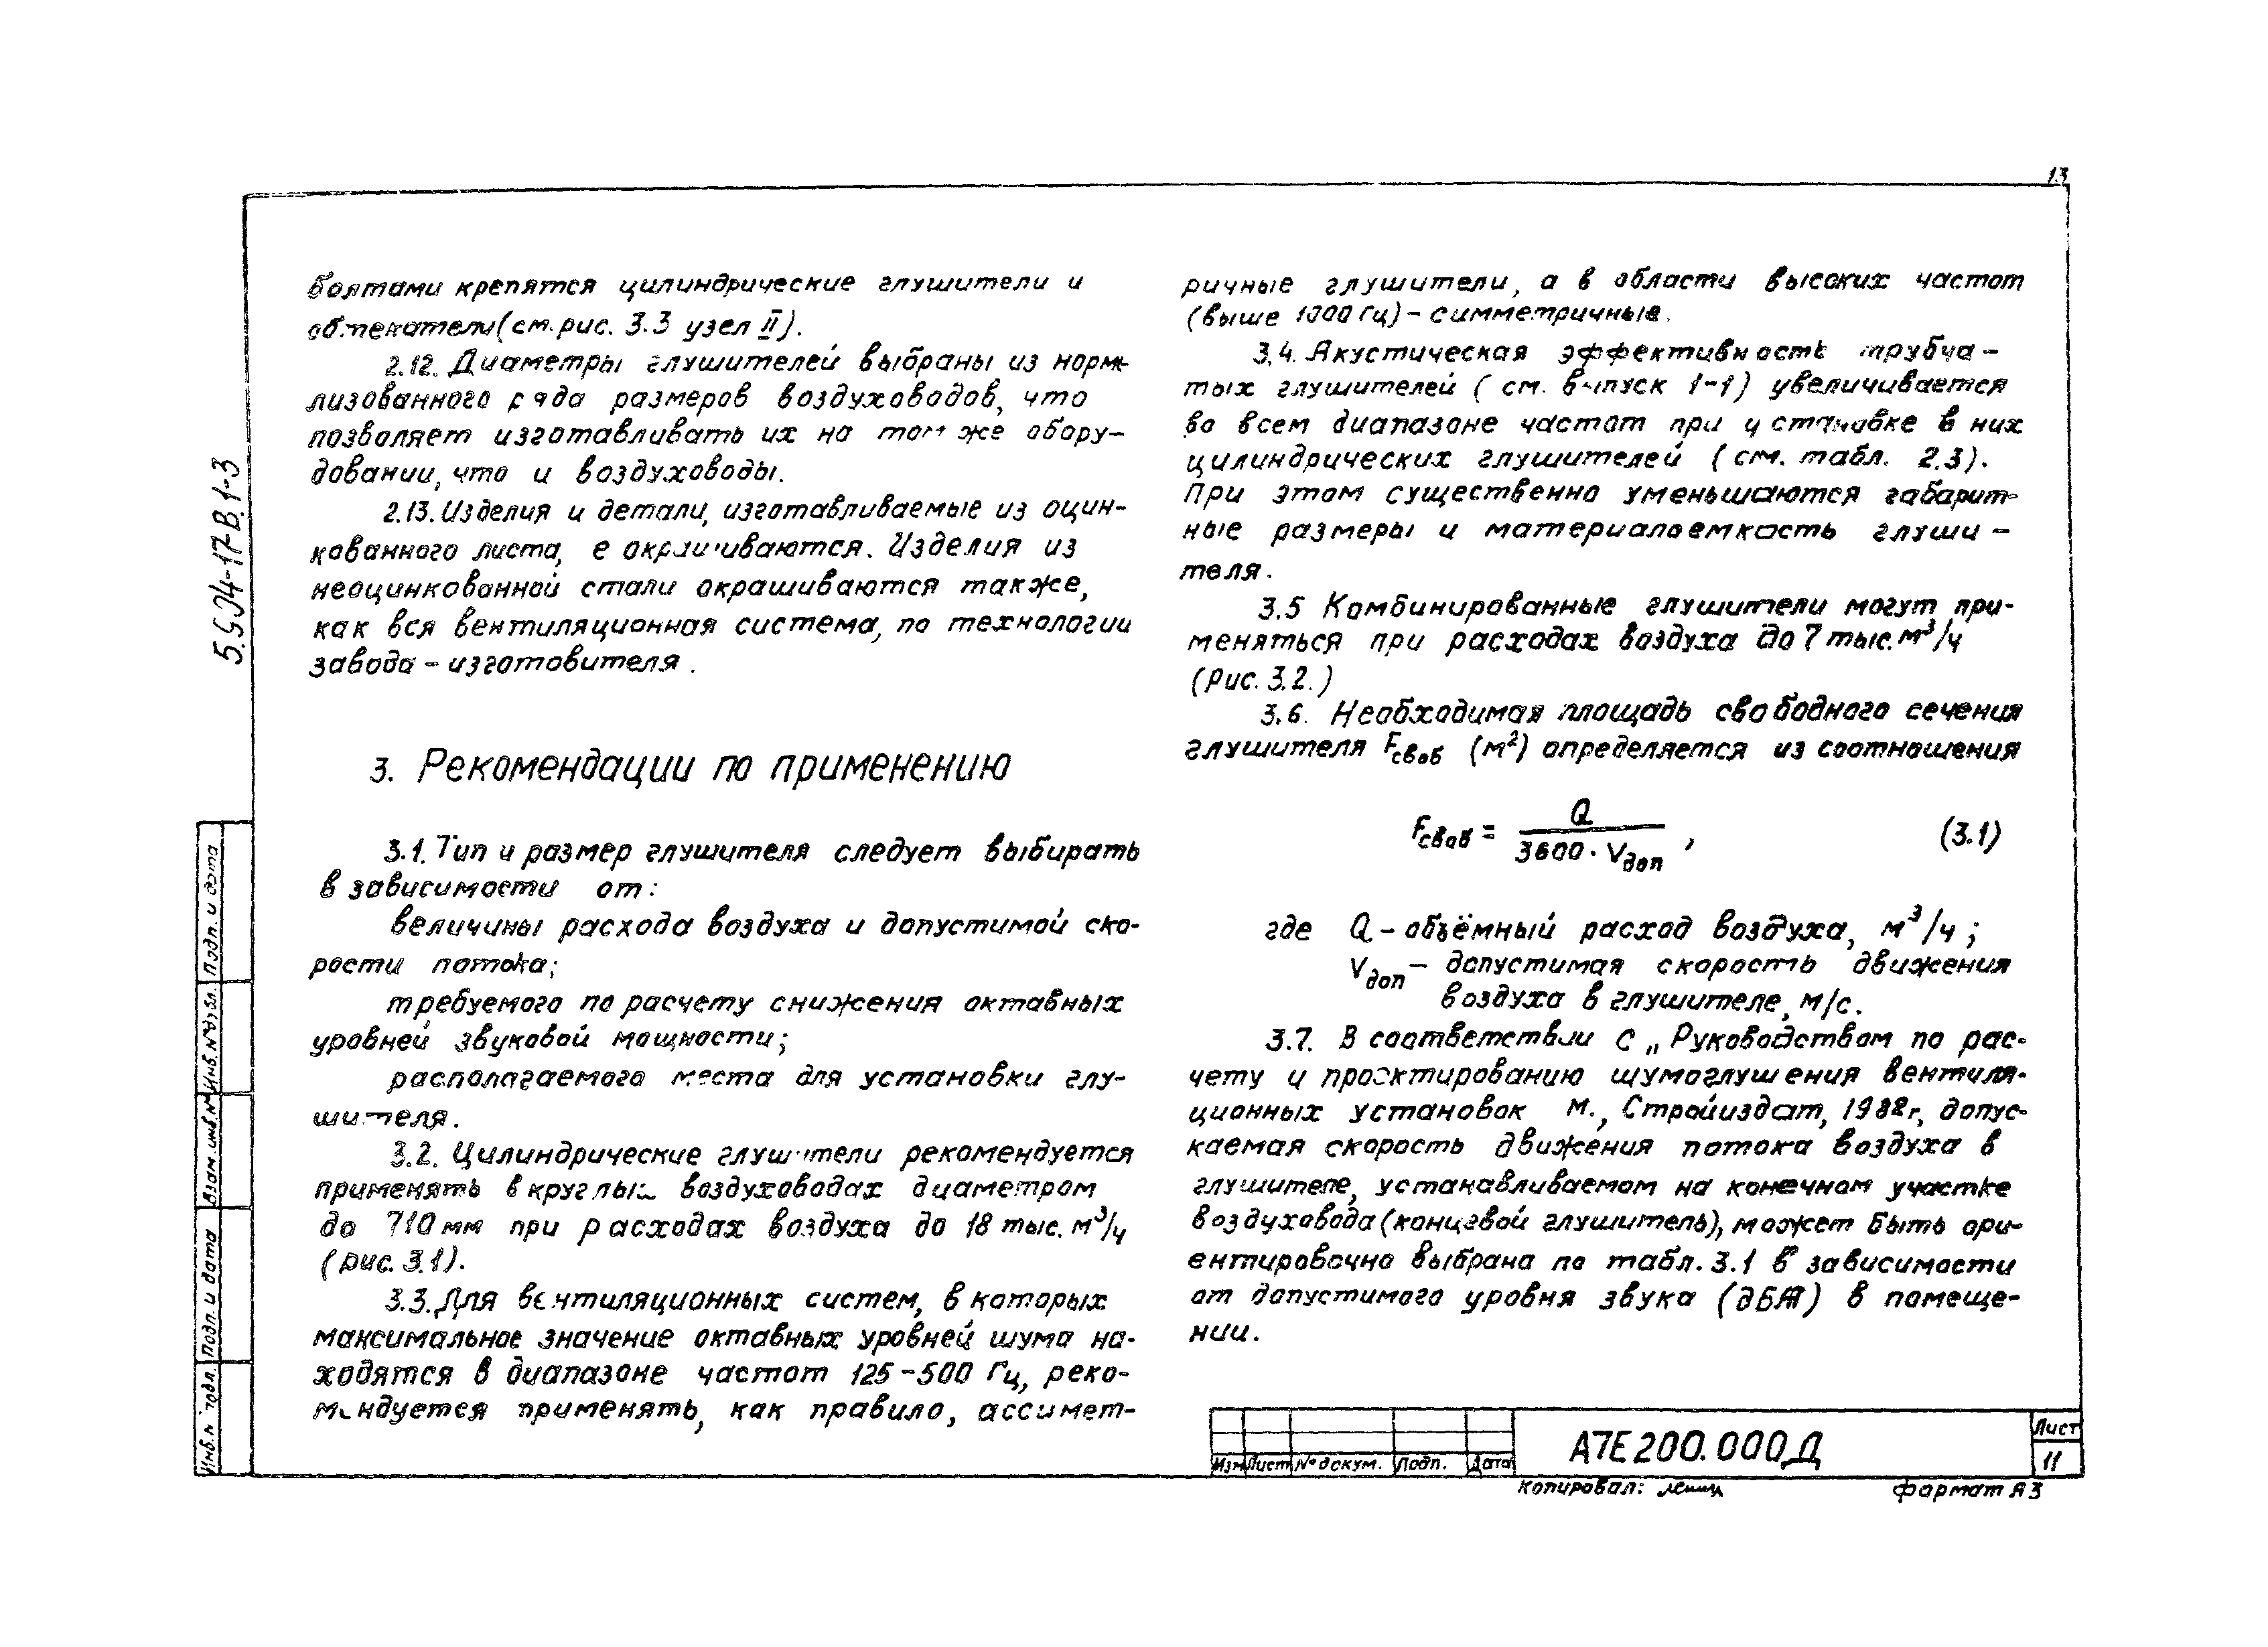 13
болтами крепятся цилиндрические глушители и
обтекатели (см. рис. 3.3 узел II).
2.12. Диаметры глушителей выбраны из норма-
лизованного ряда размеров воздуховодов, что
позволяет изготавливать их на том же обору-
довании, что и воздуховоды.
2.13. Изделия и детали, изготавливаемые из оцин-
кованного листа, е окрашиваются. Изделия из
неоцинкованной стали окрашиваются также,
как вся вентиляционная система, по технологии
завода - изготовителя.
3. Рекомендации по применению
3.1. Тип и размер глушителя следует выбирать
в зависимости от:
величины расхода воздуха и допустимой ско-
рости потока;
требуемого по расчету снижения октавных
уровней звуковой мощности;
располагаемого места для установки глу-
шителя.
3.2. Цилиндрические глушители рекомендуется
применять в круглых воздуховодах диаметром
до 710 мм при расходах воздуха до 18 тыс. м³/ч
(рис. 3.1).
3.3. Для вентиляционных систем, в которых
максимальное значение октавных уровней шума на-
ходятся в диапазоне частот 125-500 Гц, реко-
мендуется применять, как правило, ассимет-
ричные глушители, а в области высоких частот
(выше 1000 Гц) - симметричные.
3.4. Акустическая эффективность трубча-
тых глушителей (см. выпуск 1-1) увеличивается
во всем диапазоне частот при установке в них
цилиндрических глушителей (см. табл. 2.3).
При этом существенно уменьшаются габарит-
ные размеры и материалоемкость глуши-
теля.
3.5 Комбинированные глушители могут при-
меняться при расходах воздуха до 7 тыс. м³/ч
(Рис. 3.2.)
3.6. Необходимая площадь свободного сечения
глушителя Fсвоб (м²) определяется из соотношения
Fсвоб = Q / 3600 · Vдоп , (3.1)
где Q - объёмный расход воздуха, м³/ч;
Vдоп - допустимая скорость движения
воздуха в глушителе, м/с.
3.7. В соответствии с „Руководством по рас-
чету и проектированию шумоглушения вентиля-
ционных установок М., Стройиздат, 1982г, допус-
каемая скорость движения потока воздуха в
глушителе, устанавливаемом на конечном участке
воздуховода (концевой глушитель), может быть ори-
ентировочно выбрана по табл. 3.1 в зависимости
от допустимого уровня звука (дБА) в помеще-
нии.
5.904-17 В.1-3
Подп. и дата
Взам. инв. №
Подп. и дата
Инв. № подл.
Изм Лист № докум. Подп. Дата
А7Е200.000Д
Лист
11
Копировал:
формат А3